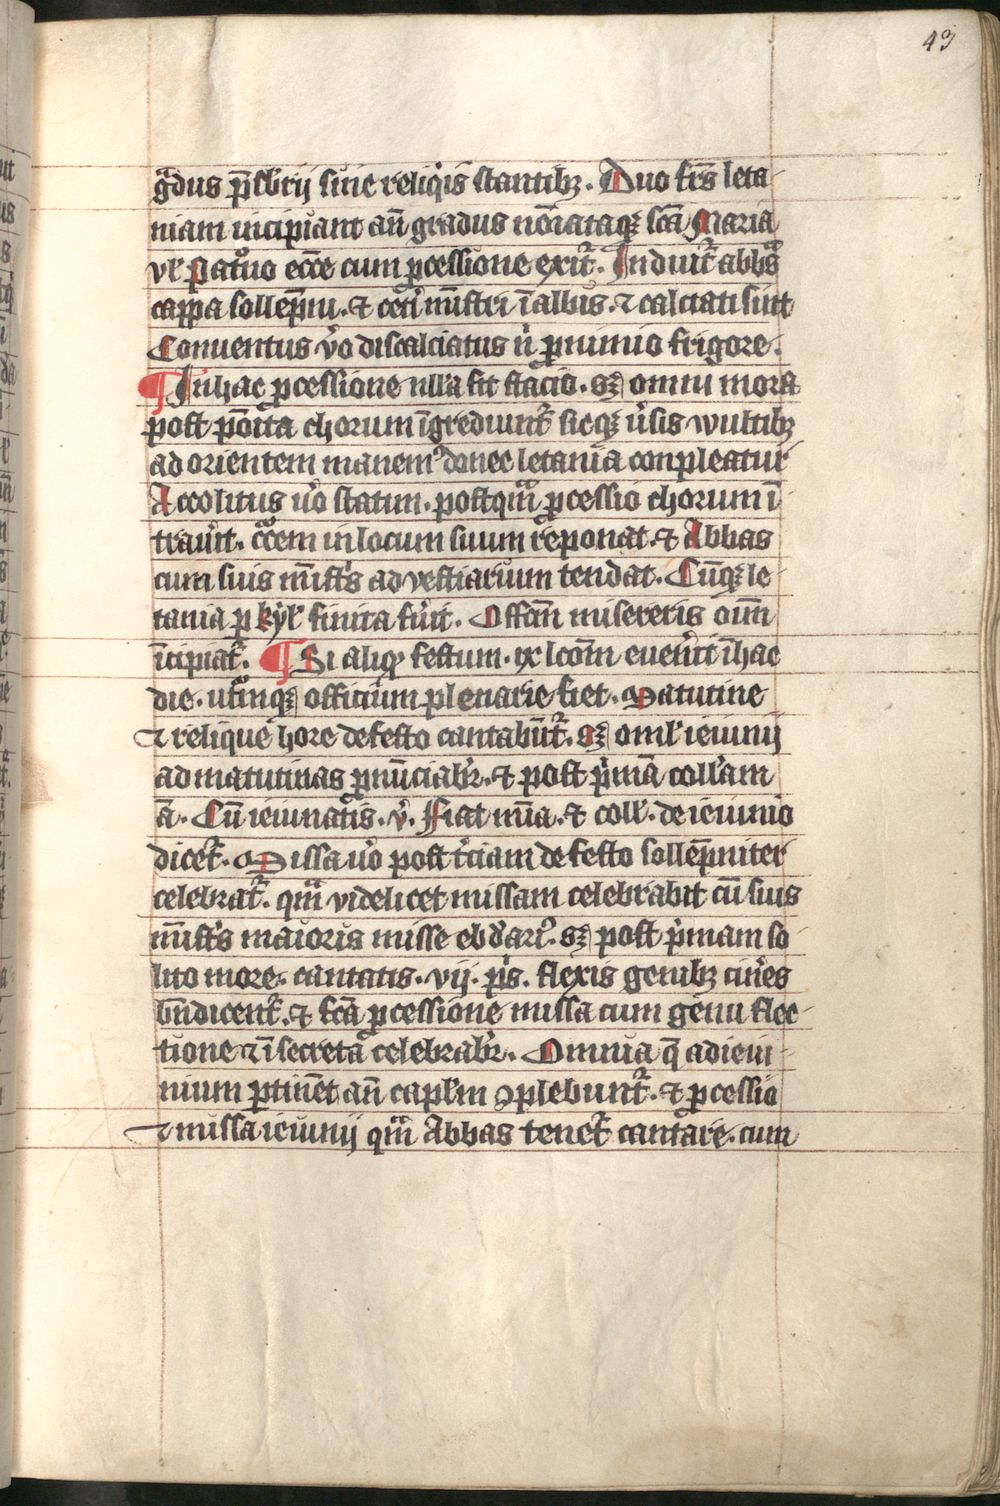 43
gͣdus p̄sbr̄ij siue reliqͥis stantibꝫ. Duo fr̄s leta-
niam incipiant an̄ gradus no͞iataqꝫ sc̄a Maria
vl̓ patͦno ecc̄e cum ꝓcessione exit᷑. Induit᷑ abbͣs
cappa sollep̄ni. ⁊ cet̓i mi͞stri ī albis. ⁊ calciati sint
Conuentus v̓o discalciatus n̓ p nimio frigore.
¶ In hac ꝓcessione nulla fit stacio. sꝫ omni mora
postpo͞ita chorum īgrediunt᷑ sicqꝫ v̓sis wultibꝫ
ad orientem manent᷑ donec letania conpleatur
Accolitus v̓o statim. postqͣm ꝓcessio chorum ī-
trau̓it. cͦcem in locum suum reponat. ⁊ Abbas
cum suis mi͞st̓s ad vestiarium tendat. Cu͞qꝫ le-
tania p kyl̓ finita fu̓it. Offm̄ misereris oim̄
īcipiat᷑. ¶ Si aliqͦ festum. ix lc̄om euen̓it ī hac
die. utͦinqꝫ officium plenarie fiet. Matutine
⁊ relique hore de festo cantabu͞t᷑. sꝫ oml̓ ieiunij
ad matutinas ꝓnu͞ciabr̓. ⁊ post pͥmā coll̓am
a͞. Cu͞ ieiunatis. v̓. Fiat mi͞a. ⁊ coll̓. de ieiunio
dicet᷑. Missa v̓o post t̓ciam de festo sollēpniter
celebrat᷑. qͣm videlicet missam celebrabit cu͞ suis
mi͞st̓s maioris misse ebd̓ari᷑. sꝫ post pͥmam so-
lito more. cantatis. vij. ps̓. flexis genibꝫ cin̓es
bn̄dicent᷑. ⁊ fc̄a ꝓcessione missa cum genu flec-
tione ⁊ ī secreta celebrabr̓. Omnia q̄ ad ieiu-
nium ptine͞t an̄ capl̓m ꝯplebunt᷑. ⁊ ꝓcessio
⁊ missa ieiunij qͣm Abbas tenet᷑ cantare. cum